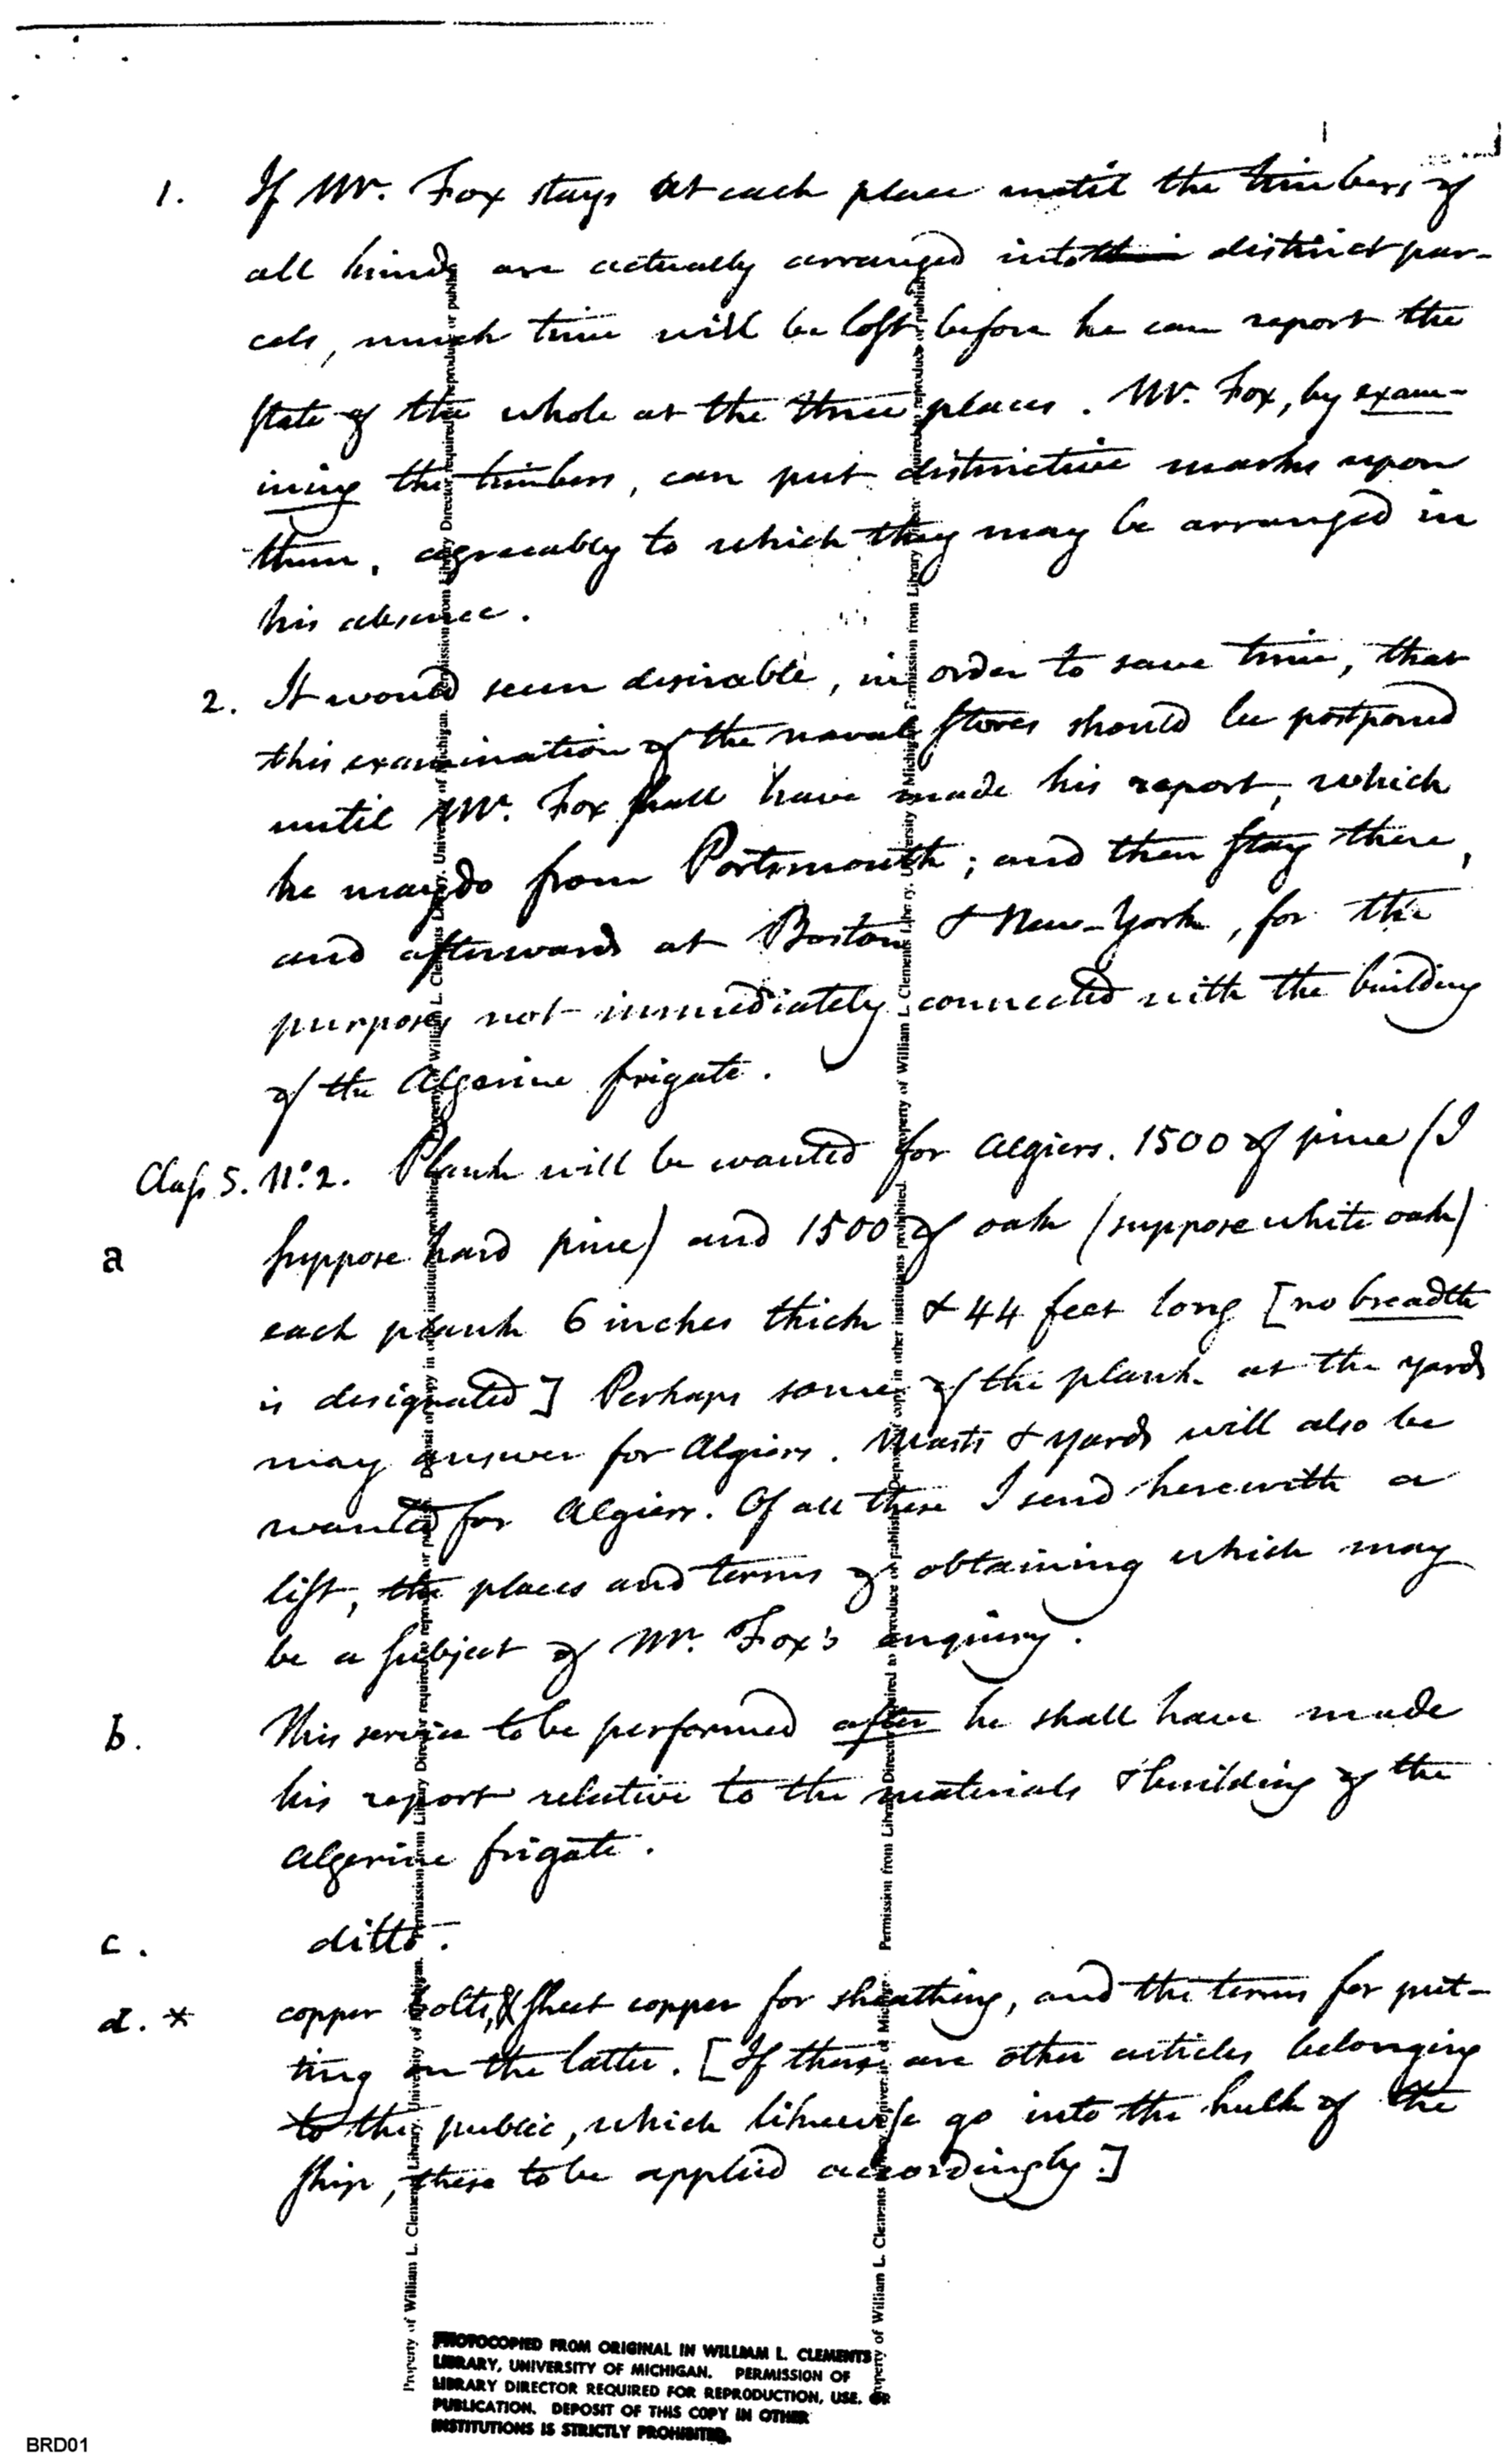 1. If Mr. Fox stays at each place until the timbers of
all kinds are actually arranged into distinct par-
cels, much time will be lost before he can report the
state of the whole at the three places. Mr. Fox, by exam-
ining the timbers, can put distinctive marks upon
them, agreeably to which they may be arranged in
his absence.
2. It would seem desirable, in order to save time, that
this examination of the naval stores should be postponed
until Mr. Fox shall have made his report, which
he may do from Portsmouth; and then stay there,
and afterwards at Boston & New-York, for the
purposes not immediately connected with the building
of the Algerine frigate.
Class 5. No. 2. Plank will be wanted for Algiers. 1500 of pine (I
a suppose hard pine) and 1500 of oak (suppose white oak)
each plank 6 inches thick & 44 feet long [no breadth
is designated] Perhaps some of the plank at the yards
may answer for Algiers. Masts & yards will also be
wanted for Algiers. Of all these I send herewith a
list, the places and terms of obtaining which may
be a subject of Mr. Fox's enquiry.
b. This service to be performed after he shall have made
his report relative to the materials & building of the
Algerine frigate.
c. ditto.
d. * copper bolts, & sheet copper for sheathing, and the terms for put-
ting on the latter. [If there are other articles belonging
to the public, which likewise go into the hulk of the
ship, these to be applied accordingly.]
PHOTOCOPIED FROM ORIGINAL IN WILLIAM L. CLEMENTS
LIBRARY, UNIVERSITY OF MICHIGAN. PERMISSION OF
LIBRARY DIRECTOR REQUIRED FOR REPRODUCTION, USE, OR
PUBLICATION. DEPOSIT OF THIS COPY IN OTHER
INSTITUTIONS IS STRICTLY PROHIBITED.
Property of William L. Clements Library, University of Michigan. Permission from Library Director required to reproduce or publish. Deposit of copy in other institutions prohibited.
Property of William L. Clements Library, University of Michigan. Permission from Library Director required to reproduce or publish. Deposit of copy in other institutions prohibited.
BRD01